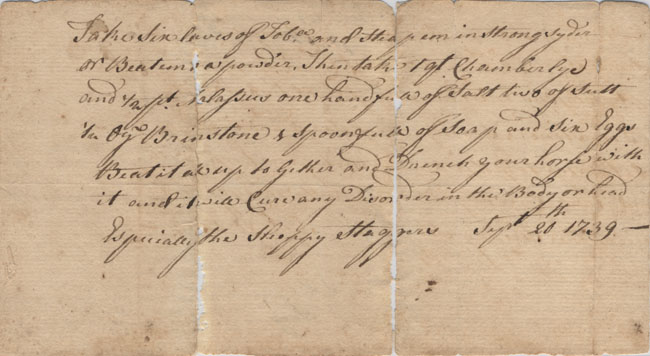 Take Six leaves of Tob.co and Steep em in strong Syder
or Beaten to a powder, Then take 1 qt. Chamberlye
and 1/2 pt. Molassus one handfull of Salt two of Sutt
Brinstone & spoonfull of Soap and Six Eggs
Beat it all up together and Drench your horse with
it and it will Cure any Disorder in the Body or head
Especially the Staggers Sept 20th 1739 —